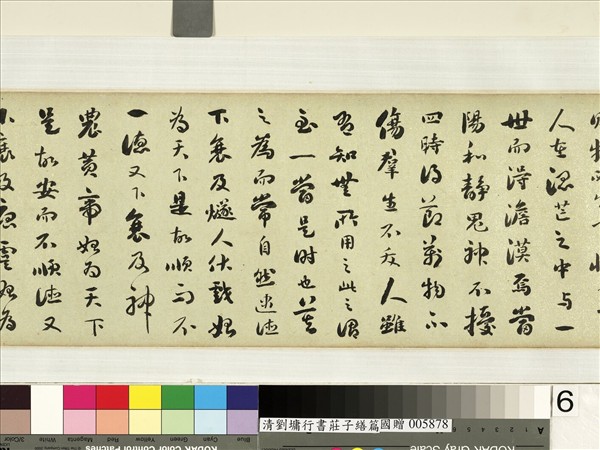 人在混芒之中与一
世而得澹漠焉當
陽和静鬼神不擾
四時得節萬物不
傷羣生不夭人雖
有知無所用之此之謂
至一當是时也莫
之為而常自然逮德
下衰及燧人伏戲始
為天下是故順而不
一德又下衰及神
農黃帝始為天下
是故安而不順德又
下衰及唐虞始為
6
清劉墉行書莊子繕篇國贈 005878
3/Color
White
Magenta
Red
Yellow
Green
Cyan
Blue
KODAK Color Control Patches
KODAK Gray Scale
A 1 2 3 4 5 6